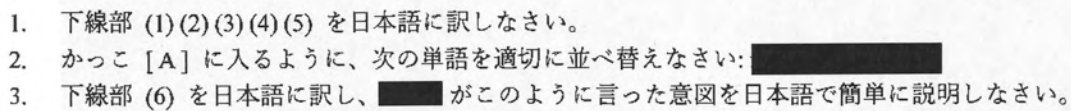 1. 下線部 (1)(2)(3)(4)(5) を日本語に訳しなさい。
2. かっこ [A] に入るように、次の単語を適切に並べ替えなさい:
3. 下線部 (6) を日本語に訳し、 がこのように言った意図を日本語で簡単に説明しなさい。